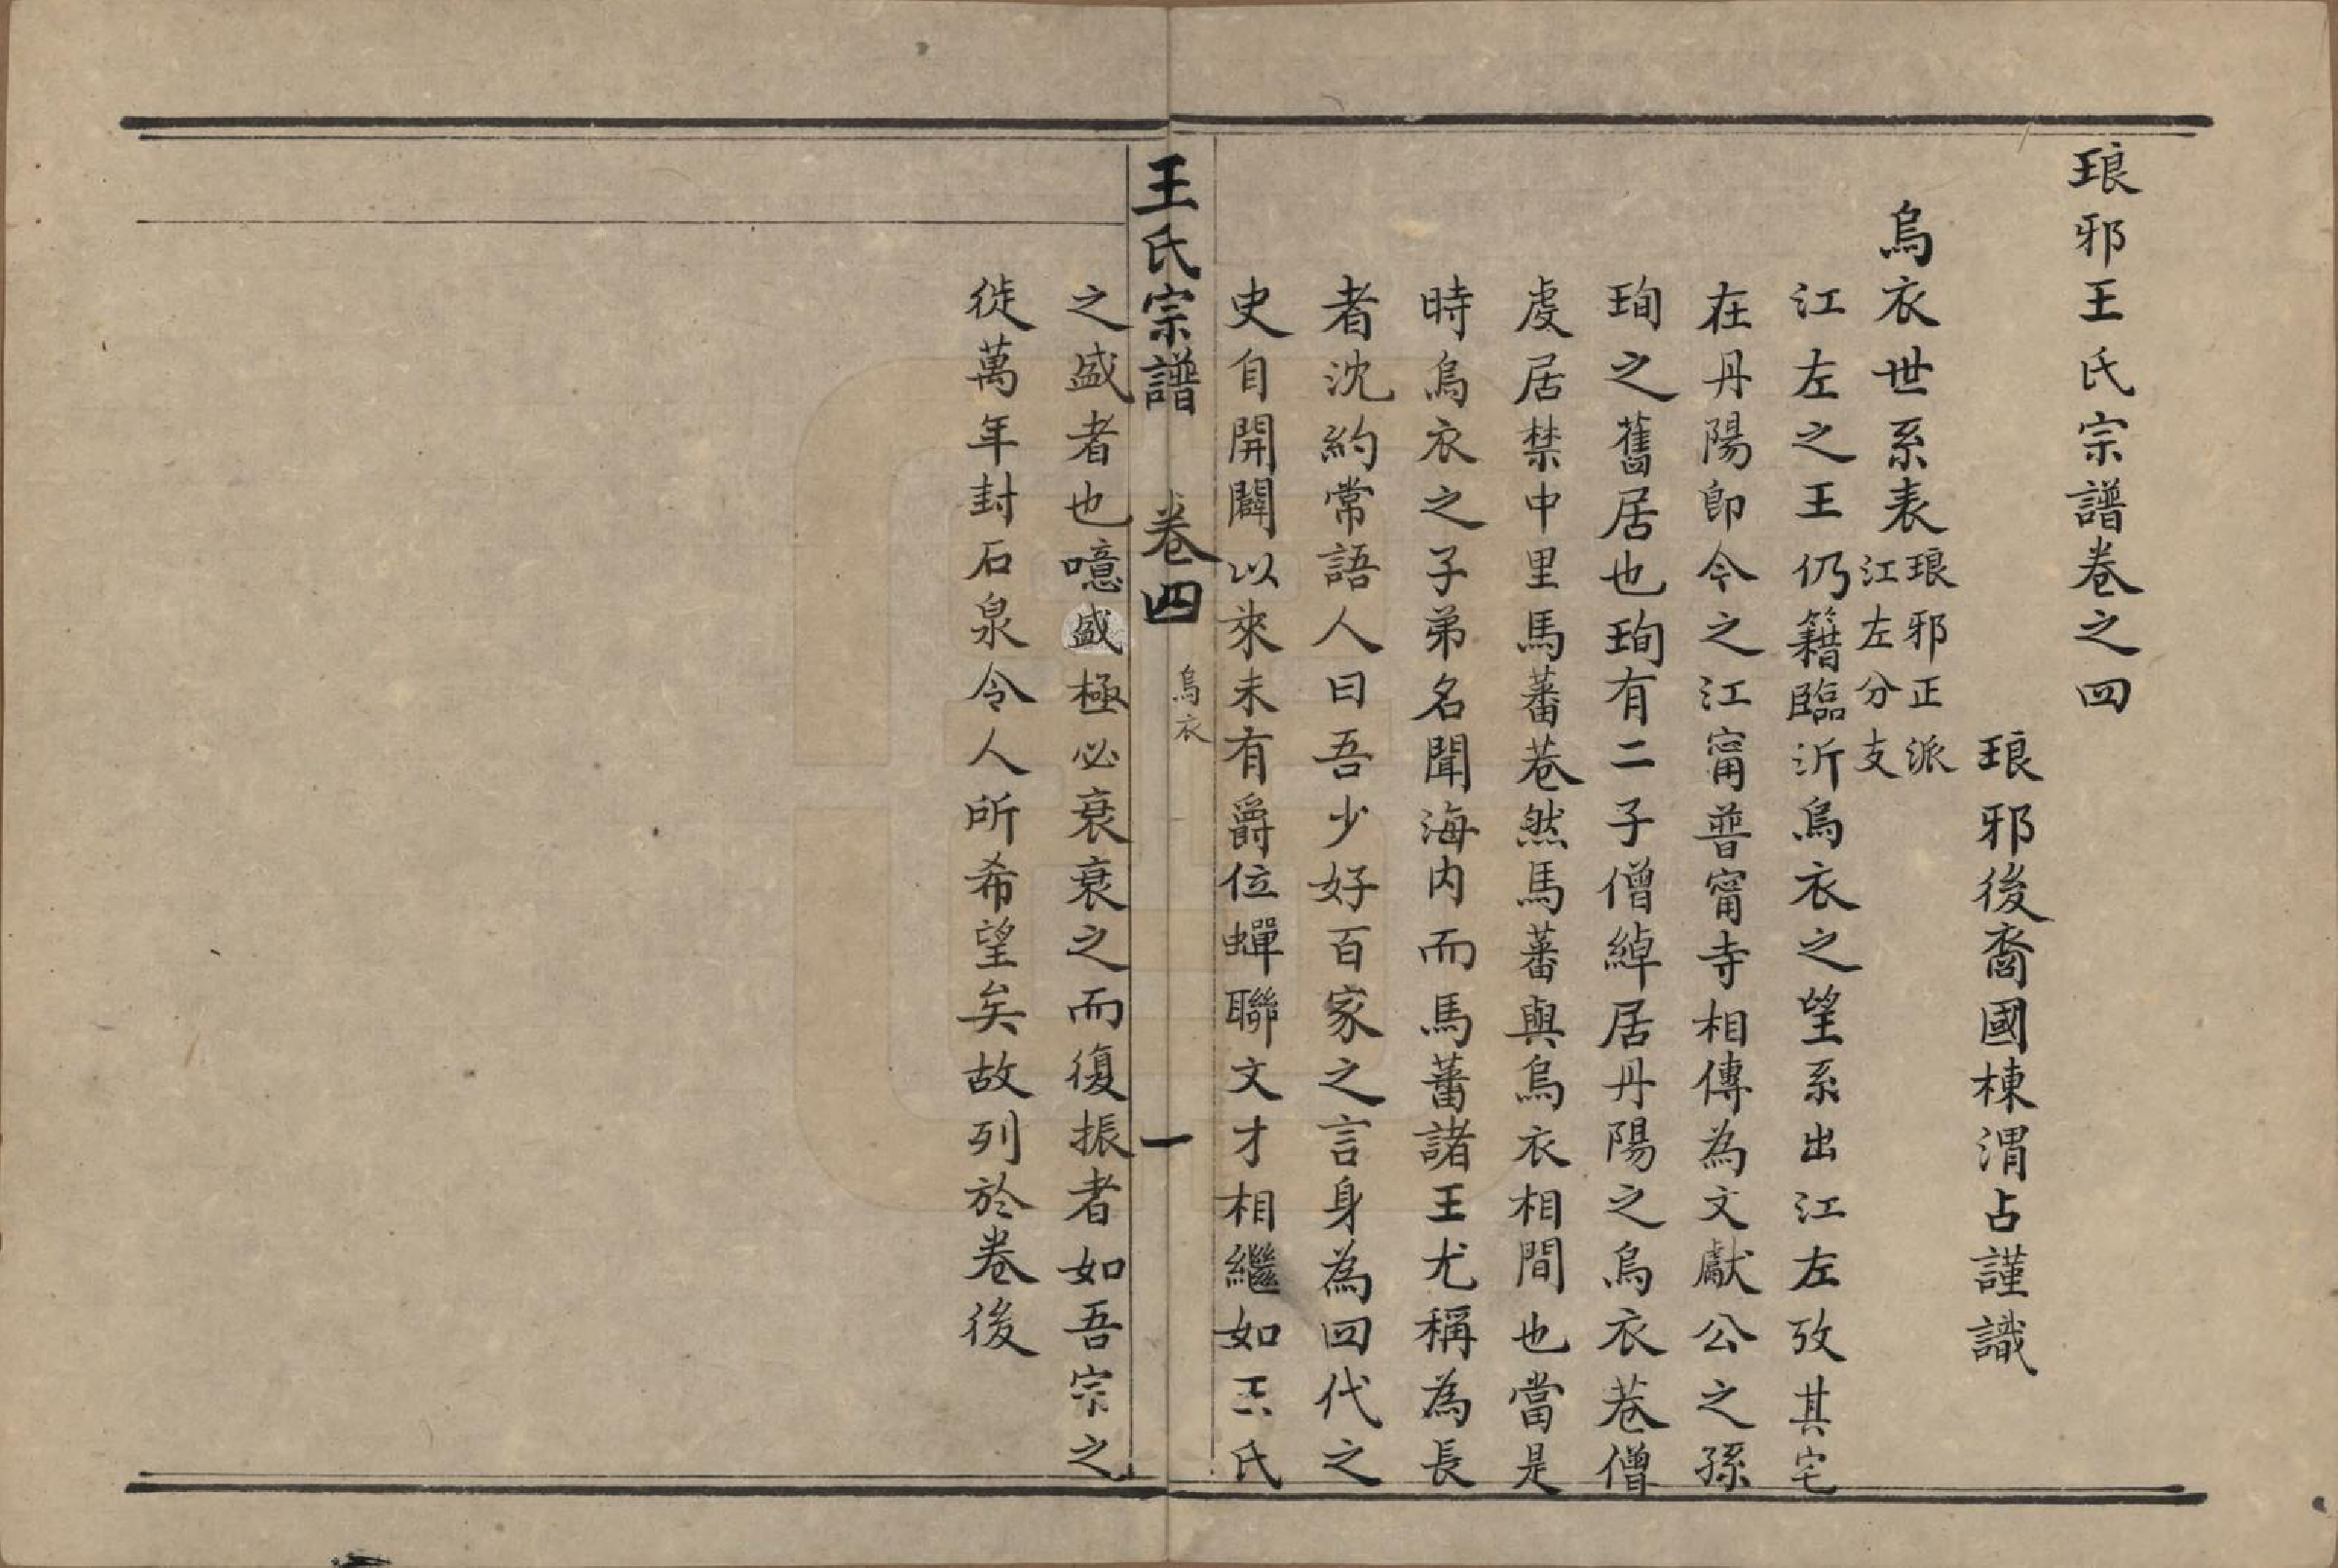 琅邪王氏宗譜卷之四
琅邪後裔國棟渭占謹識
烏衣世系表
琅邪正派
江左分支
江左之王仍籍臨沂烏衣之望系出江左攷其宅
在丹陽卽今之江甯普甯寺相傳為文獻公之孫
珣之舊居也珣有二子僧綽居丹陽之烏衣巷僧
虔居禁中里馬蕃巷然馬蕃與烏衣相間也當是
時烏衣之子弟名聞海內而馬蕃諸王尤稱為長
者沈約常語人曰吾少好百家之言身為四代之
史自開闢以來未有爵位蟬聯文才相繼如王氏
王氏宗譜 卷四 烏衣 一
之盛者也噫盛極必衰衰之而復振者如吾宗之
徙萬年封石泉令人所希望矣故列於卷後